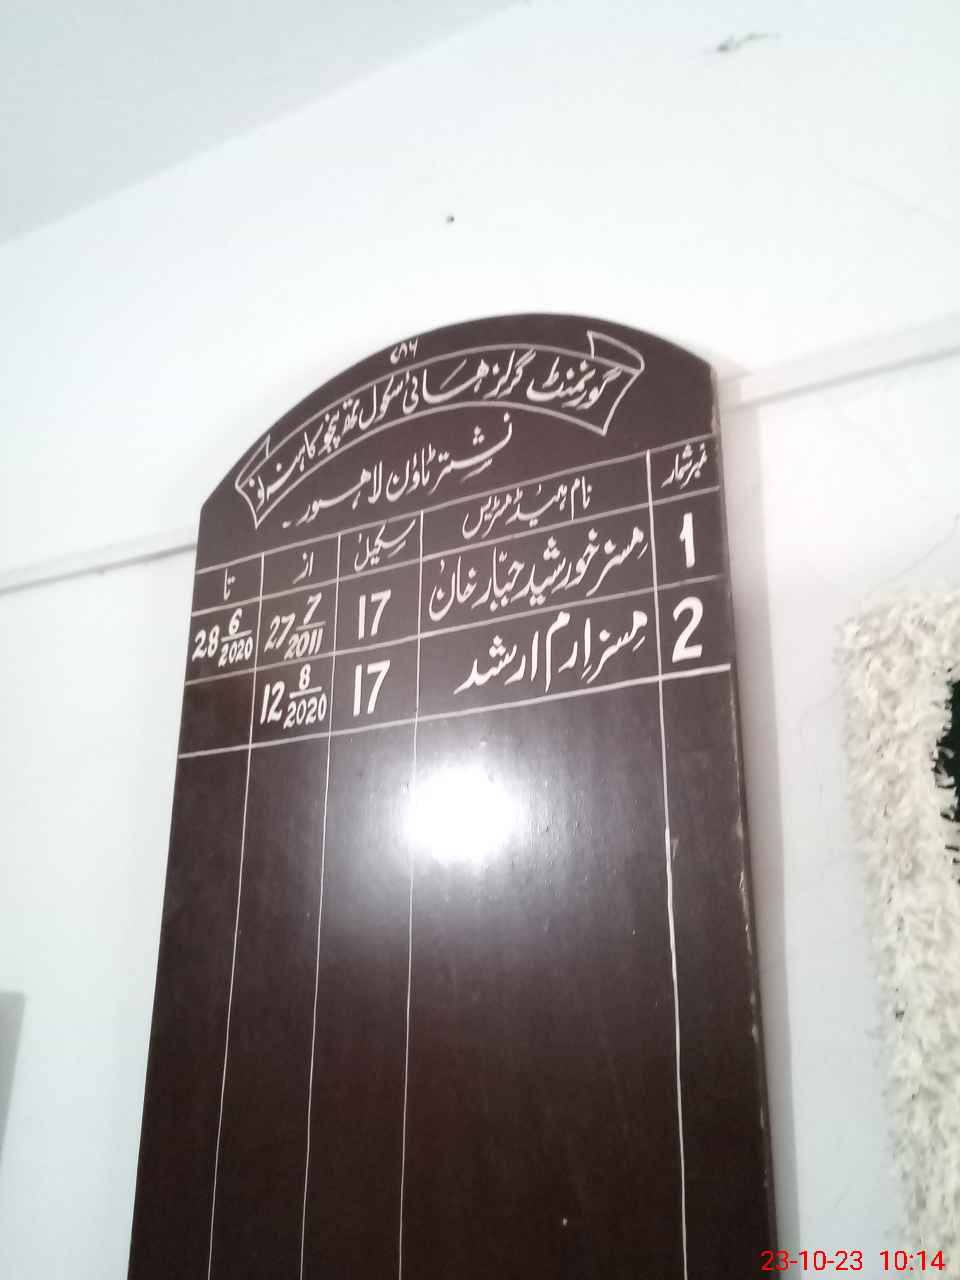 ۷۸۶
گورنمنٹ گرلز ہائی سکول تھہ پنجو کاہنہ نو
نشتر ٹاؤن لاہور۔
نمبر شمار نام ہیڈ مسٹریس سکیل از تا
1 مسز خورشید جبّار خان 17 27 7/2011 28 6/2020
2 مسز ارم ارشد 17 12 8/2020
23-10-23 10:14